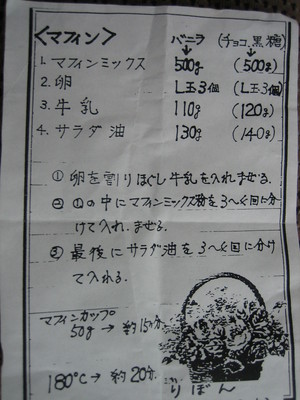 <マフィン> バニラ (チョコ、黒糖)
1. マフィンミックス 500g (500g)
2. 卵 L玉3個 (L玉3個)
3. 牛乳 110g (120g)
4. サラダ油 130g (140g)
① 卵を割りほぐし牛乳を入れまぜる。
② ①の中にマフィンミックス粉を3〜4回に分
けて入れ、まぜる。
③ 最後にサラダ油を3〜4回に分け
て入れる。
マフィンカップ
50g → 約15分
180℃ → 約20分
りぼん